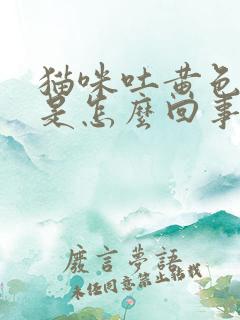 猫咪吐黄色
是怎麽回事
废言夢語
未任同意禁止转载